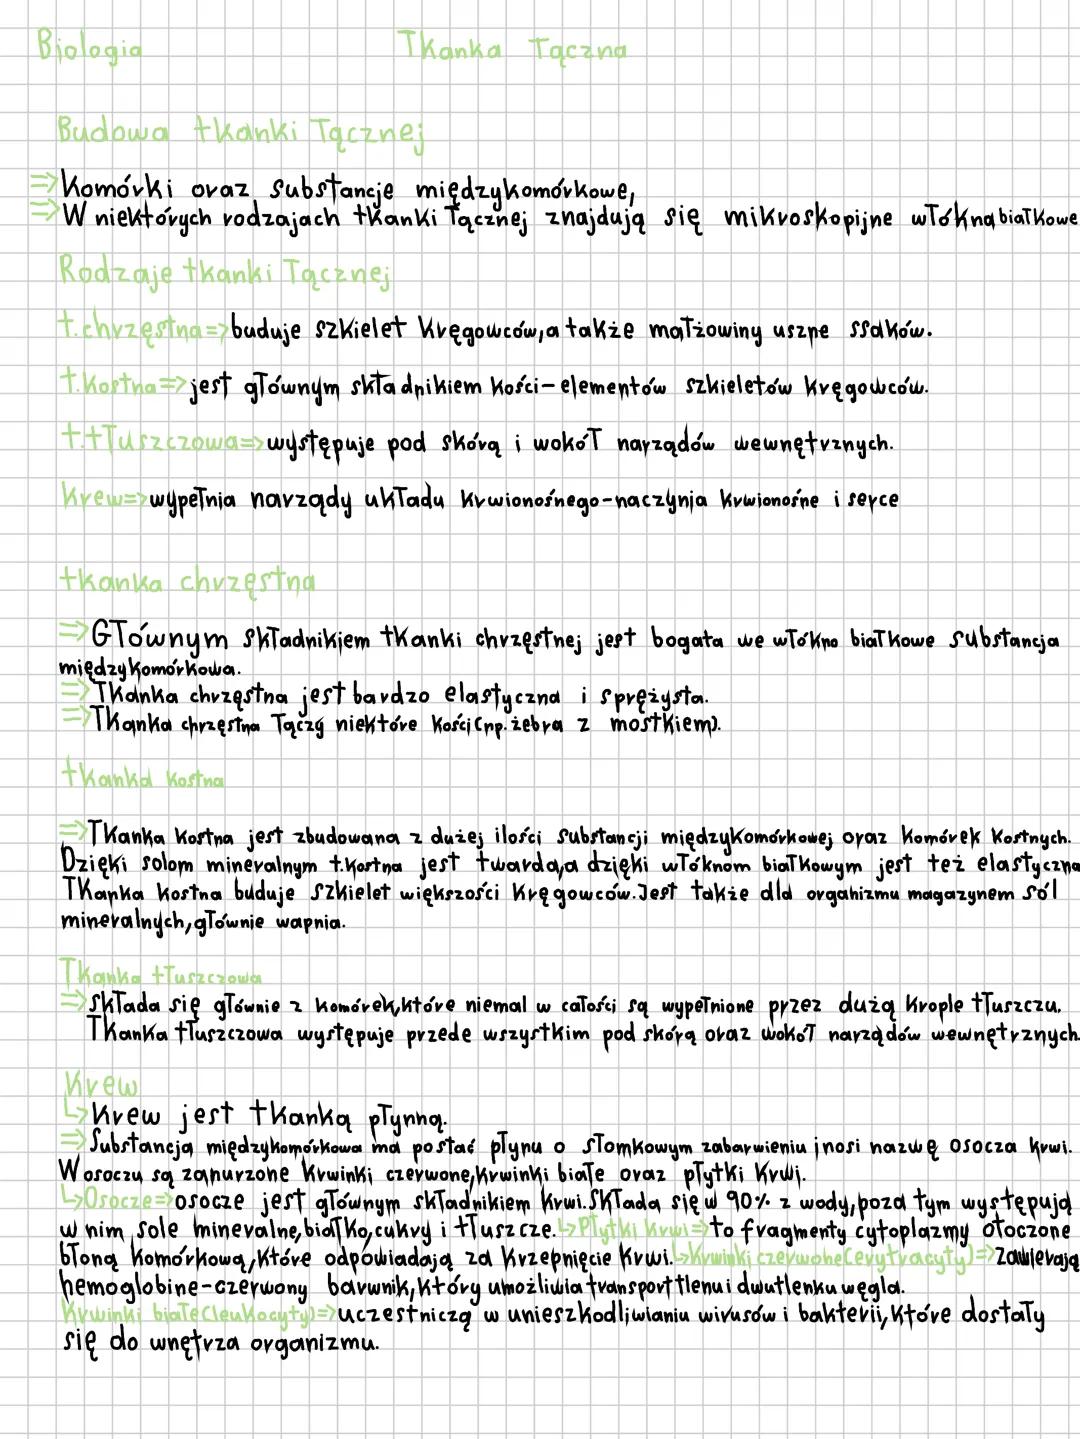 Biologia Tkanka Łączna
Budowa tkanki Łącznej
=> Komórki oraz substancje międzykomórkowe,
=> W niektórych rodzajach tkanki Łącznej znajdują się mikroskopijne włókna białkowe
Rodzaje tkanki Łącznej
t.chrzęstna=>buduje szkielet kręgowców,a także małżowiny uszne ssaków.
t.kostna=>jest głównym składnikiem kości-elementów szkieletów kręgowców.
t.tłuszczowa=>występuje pod skórą i wokół narządów wewnętrznych.
Krew=>wypełnia narządy układu krwionośnego-naczynia krwionośne i serce
tkanka chrzęstna
=>Głównym składnikiem tkanki chrzęstnej jest bogata we włókna białkowe substancja
międzykomórkowa.
=>Tkanka chrzęstna jest bardzo elastyczna i sprężysta.
=>Tkanka chrzęstna łączy niektóre kości(np.żebra z mostkiem).
tkanka kostna
=>Tkanka kostna jest zbudowana z dużej ilości substancji międzykomórkowej oraz komórek kostnych.
Dzięki solom mineralnym t.kostna jest twarda,a dzięki włóknom białkowym jest też elastyczna
Tkanka kostna buduje szkielet większości kręgowców.Jest także dla organizmu magazynem sól
mineralnych,głównie wapnia.
Tkanka tłuszczowa
=>składa się głównie z komórek,które niemal w całości są wypełnione przez dużą krople tłuszczu.
Tkanka tłuszczowa występuje przede wszystkim pod skórą oraz wokół narządów wewnętrznych
Krew
↳Krew jest tkanką płynną.
=>Substancja międzykomórkowa ma postać płynu o słomkowym zabarwieniu inosi nazwę osocza krwi.
W osoczu są zanurzone krwinki czerwone,krwinki białe oraz płytki krwi.
↳Osocze=>osocze jest głównym składnikiem krwi.Składa się w 90% z wody,poza tym występują
w nim sole mineralne,białko,cukry i tłuszcze.↳Płytki krwi=>to fragmenty cytoplazmy otoczone
błoną komórkową,które odpowiadają za krzepnięcie krwi.↳Krwinki czerwone(erytracyty)=>Zawierają
hemoglobine-czerwony barwnik,który umożliwia transport tlenu i dwutlenku węgla.
Krwinki białe(leukocyty)=>uczestniczą w unieszkodliwianiu wirusów i bakterii,które dostały
się do wnętrza organizmu.